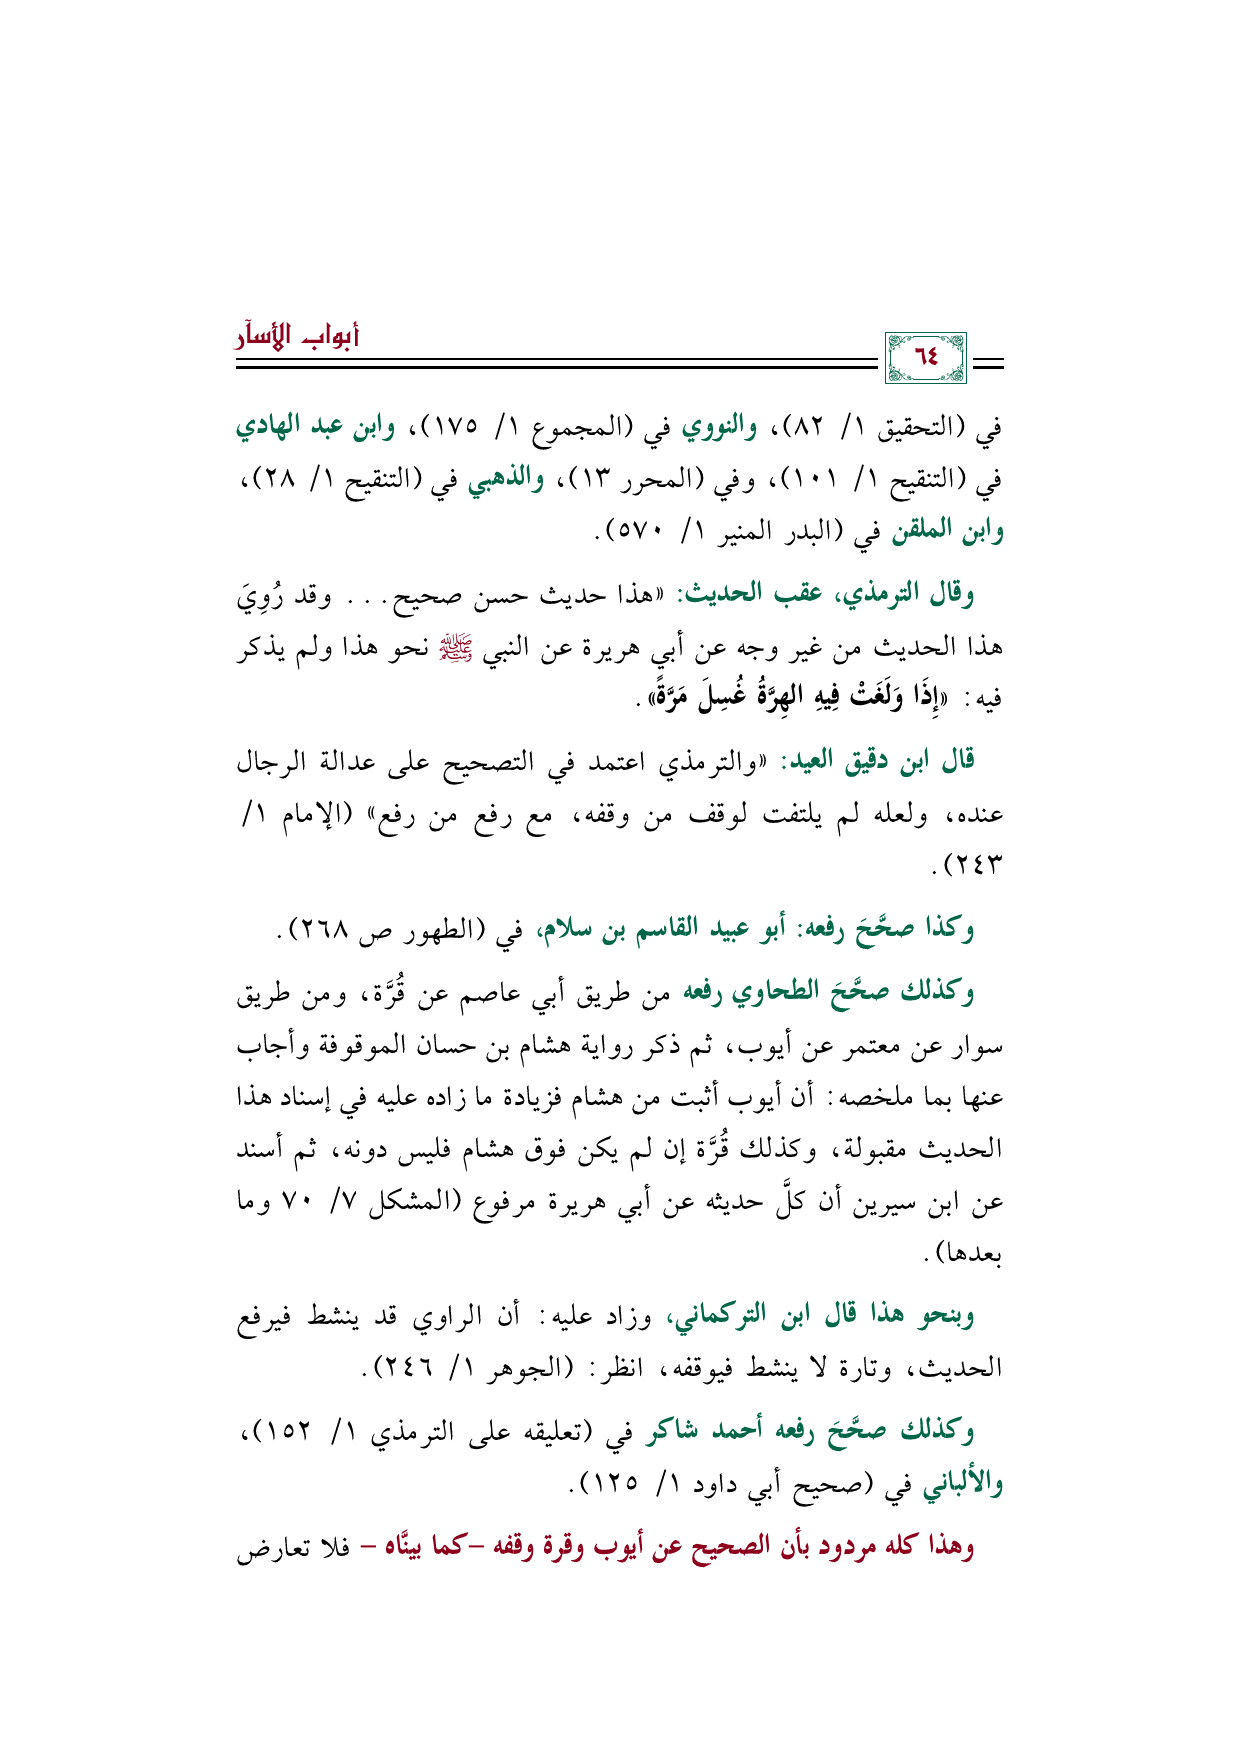 أبواب الأسآر
٦٤
في (التحقيق ١/ ٨٢)، والنووي في (المجموع ١/ ١٧٥)، وابن عبد الهادي
في (التنقيح ١/ ١٠١)، وفي (المحرر ١٣)، والذهبي في (التنقيح ١/ ٢٨)،
وابن الملقن في (البدر المنير ١/ ٥٧٠).
وقال الترمذي، عقب الحديث: «هذا حديث حسن صحيح... وقد رُوِيَ
هذا الحديث من غير وجه عن أبي هريرة عن النبي ﷺ نحو هذا ولم يذكر
فيه: «إِذَا وَلَغَتْ فِيهِ الهِرَّةُ غُسِلَ مَرَّةً».
قال ابن دقيق العيد: «والترمذي اعتمد في التصحيح على عدالة الرجال
عنده، ولعله لم يلتفت لوقف من وقفه، مع رفع من رفع» (الإمام ١/
٢٤٣).
وكذا صحَّحَ رفعه: أبو عبيد القاسم بن سلام، في (الطهور ص ٢٦٨).
وكذلك صحَّحَ الطحاوي رفعه من طريق أبي عاصم عن قُرَّة، ومن طريق
سوار عن معتمر عن أيوب، ثم ذكر رواية هشام بن حسان الموقوفة وأجاب
عنها بما ملخصه: أن أيوب أثبت من هشام فزيادة ما زاده عليه في إسناد هذا
الحديث مقبولة، وكذلك قُرَّة إن لم يكن فوق هشام فليس دونه، ثم أسند
عن ابن سيرين أن كلَّ حديثه عن أبي هريرة مرفوع (المشكل ٧/ ٧٠ وما
بعدها).
وبنحو هذا قال ابن التركماني، وزاد عليه: أن الراوي قد ينشط فيرفع
الحديث، وتارة لا ينشط فيوقفه، انظر: (الجوهر ١/ ٢٤٦).
وكذلك صحَّحَ رفعه أحمد شاكر في (تعليقه على الترمذي ١/ ١٥٢)،
والألباني في (صحيح أبي داود ١/ ١٢٥).
وهذا كله مردود بأن الصحيح عن أيوب وقرة وقفه –كما بينَّاه – فلا تعارض